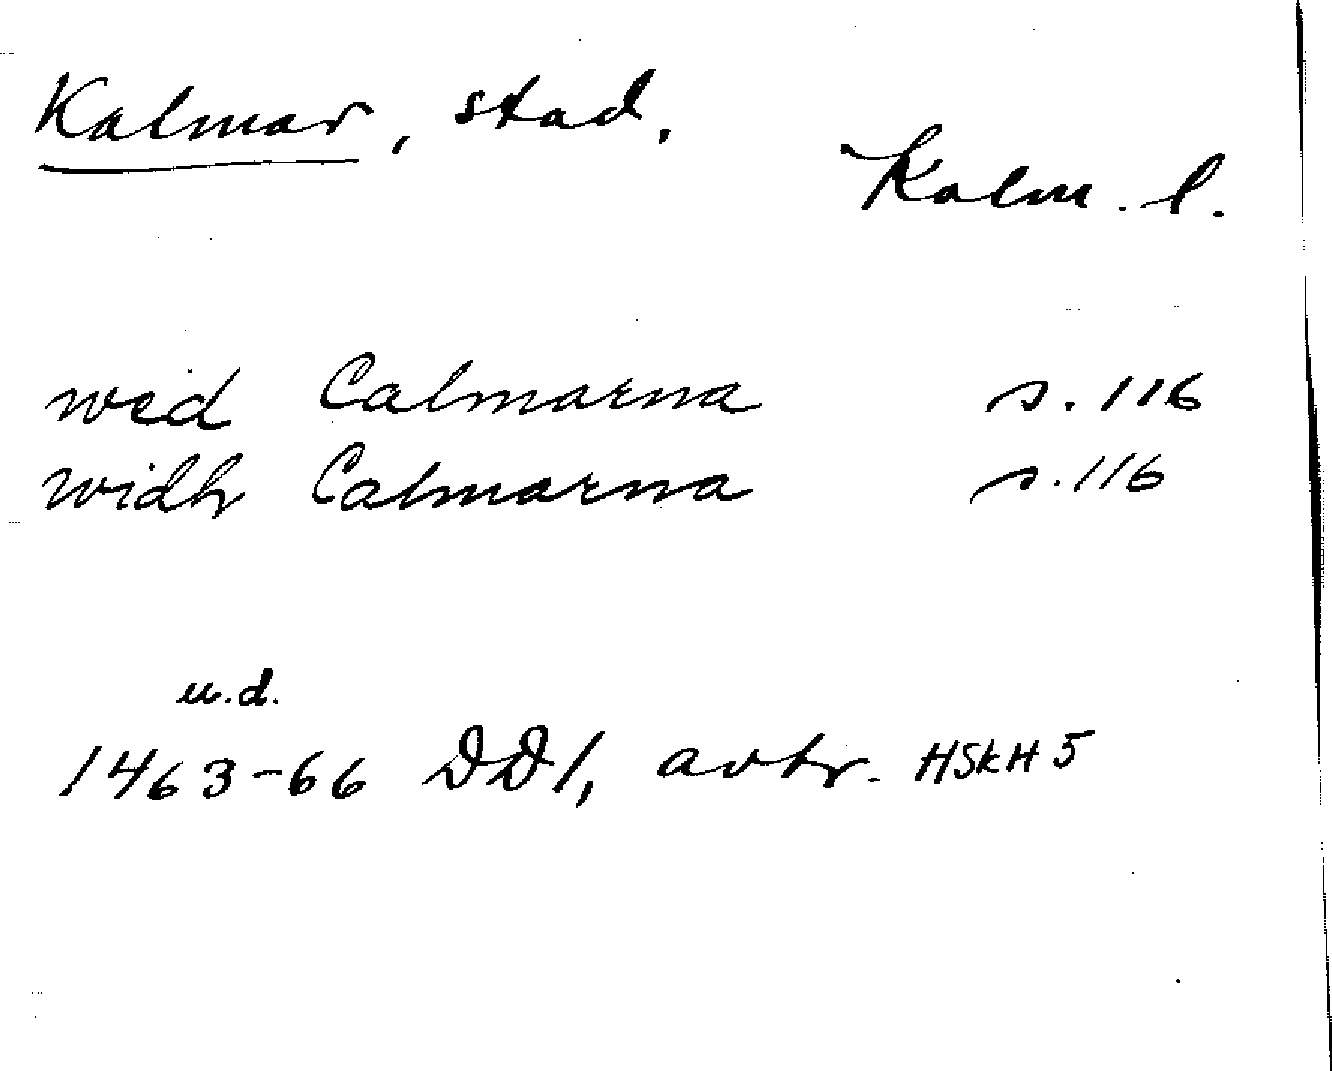 Kalmar, stad.
Kalm. l.
wed Calmarna s. 116
widh Calmarna s. 116
u.d.
1463-66 DD1, avtr. HSkH 5